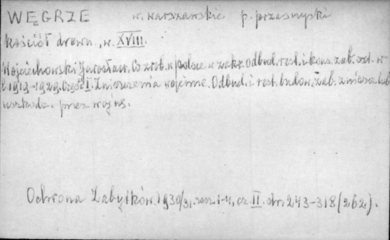 WĘGRZE w. warszawskie p. przasnyski
kościół drewn., w. XVIII.
Wojciechowski Jarosław. Co zrob. w Polsce w zakr. odbud. rest. i kons. zab. ost. w
l. 1919-1929. Część I. Zniszczenia wojenne. Odbud. i rest. budow. zab. zniszcz. lub
uszkodz. przez wojnę.
Ochrona Zabytków. 1930/31, zesz. 1-4, cz. II. str. 243-318 (262).